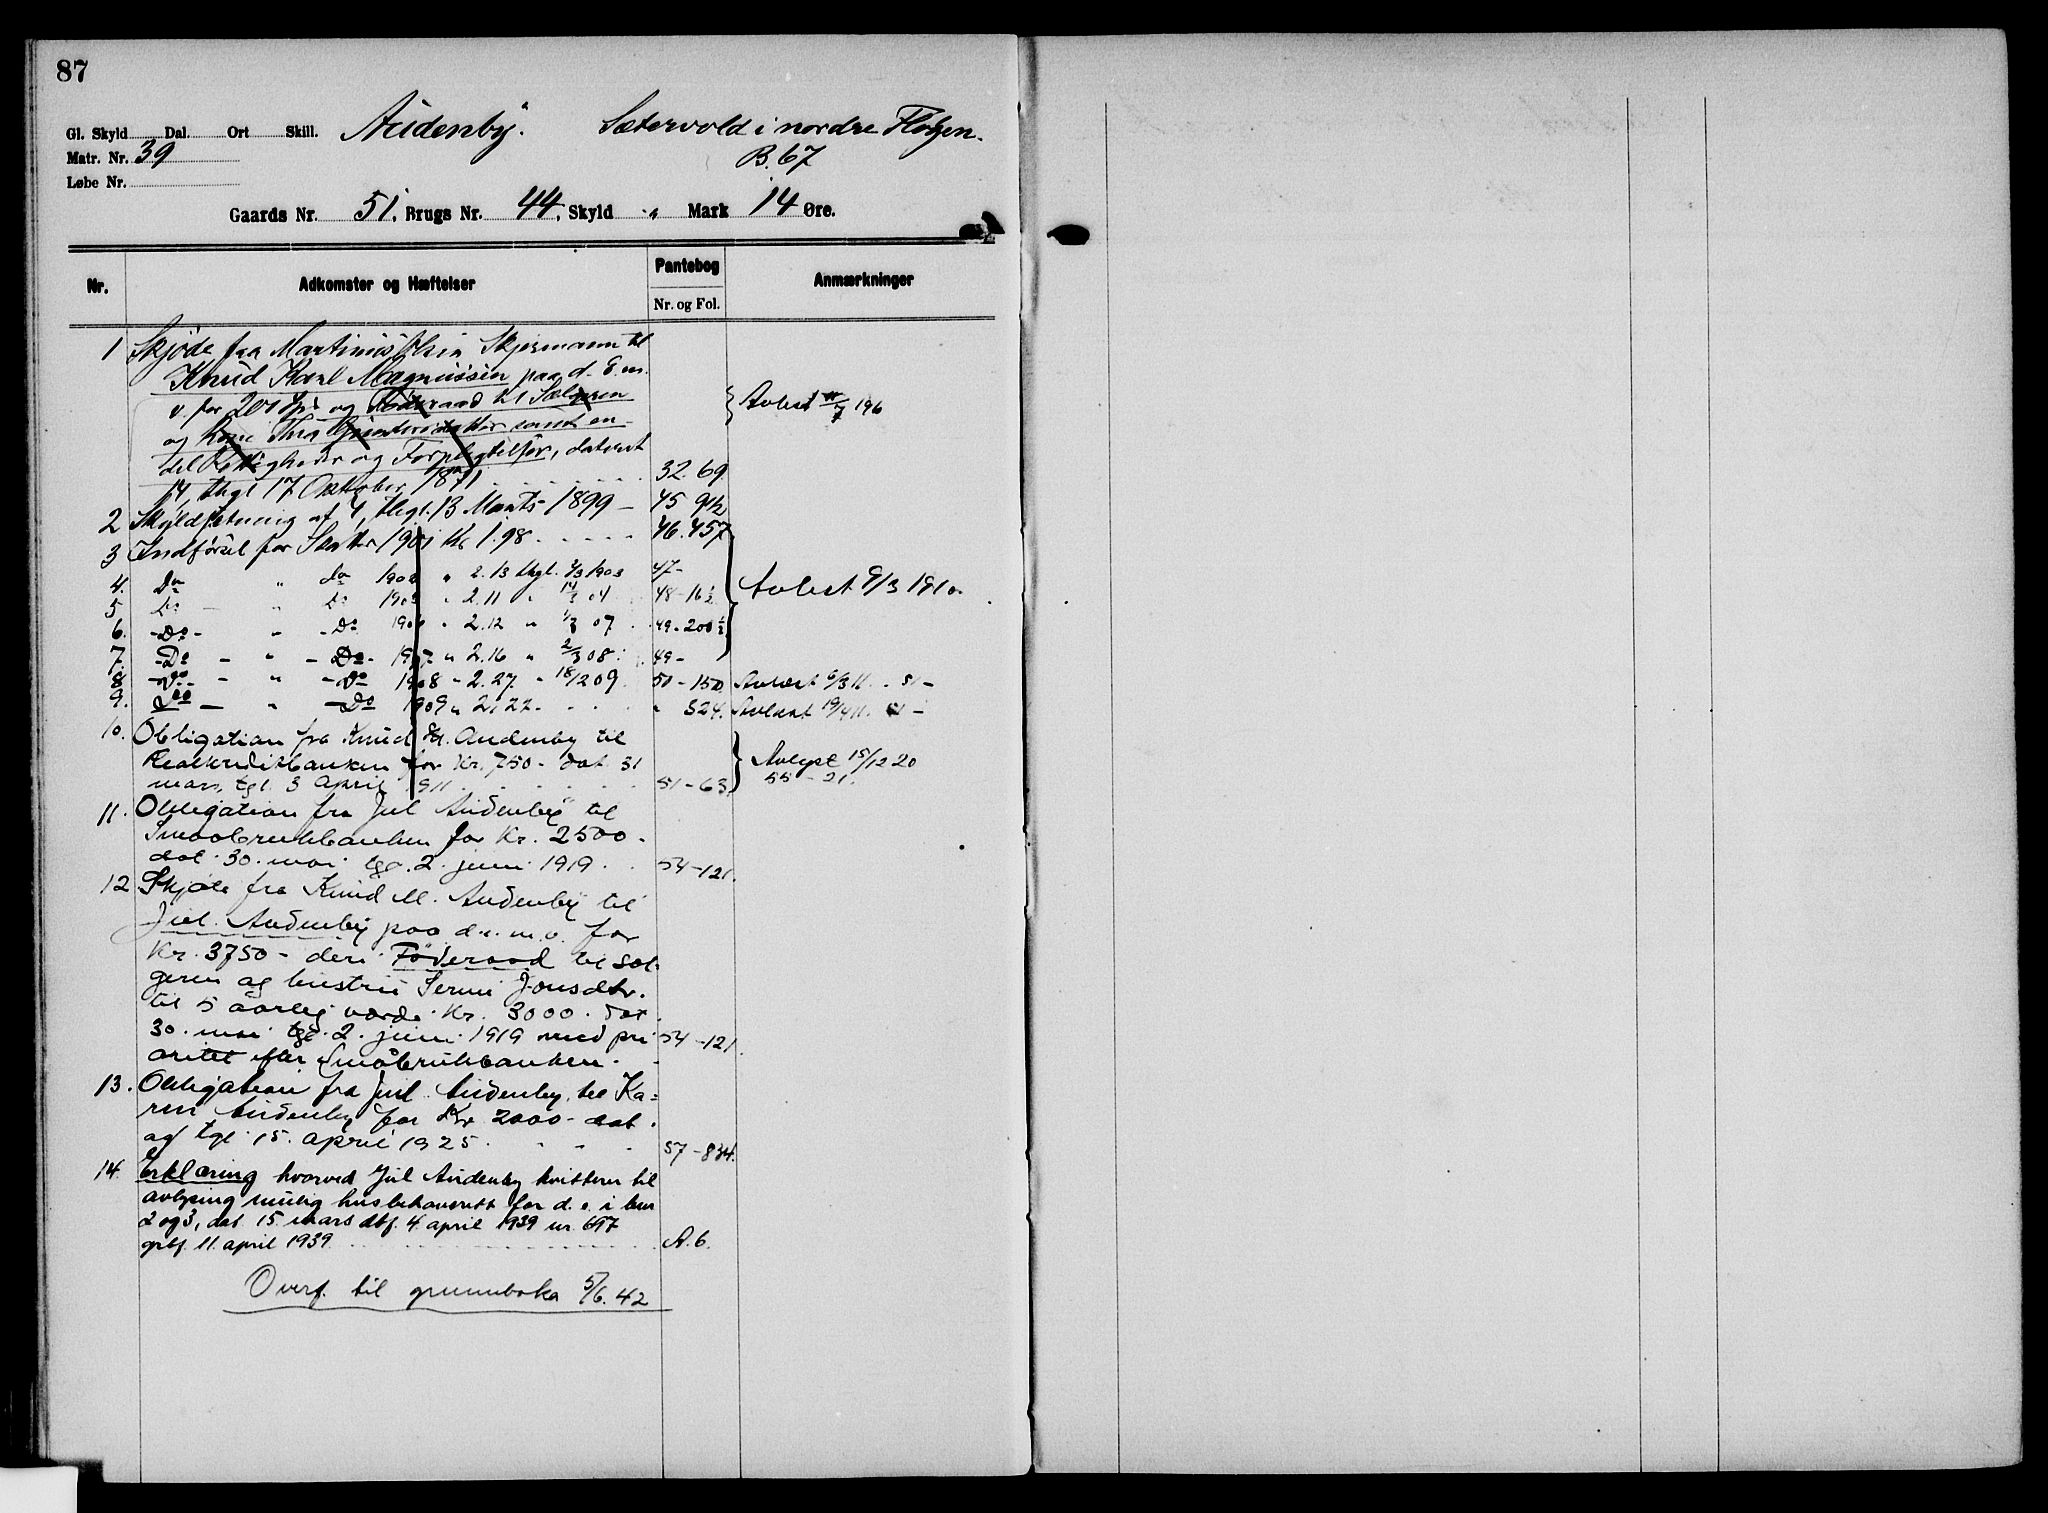 87
Gl. Skyld Dal. Ort Skill. Audenby. Sætervold i nordre Flotjen.
Matr. Nr. 39 B. 67
Løbe Nr.
Gaards Nr. 51, Brugs Nr. 44, Skyld " Mark 14 Øre.
Nr. Adkomster og Hæftelser Pantebog Nr. og Fol. Anmærkninger
1 Skjøde fra Martinus Olsen Skjesmann til
Knud Karl Magnussen paa d. E. m.
v. for 201 Spd og Føderaad til Sælgeren Avlest 7 196
og Kone samt en
del Rettigheder og Forpligtelser, dateret
14, thgl 17 Oktober 1871 32. 69
2 Skyldsetning af 4, thgl. 13 Marts 1899 — 45 91½
3 Indførsel for Skatter 1901 Kr 1.98 46.457
4. Do " do 1902 " 2.13 thgl. 3/3 1903 47- Avlest 9/3 1910.
5 Do — " Do 1903 " 2.11 " 14/3 04 48-16½
6. -Do- " -Do 190 " 2.12 " 1/3 07 49-200½
7. -Do - " - Do- 1907 " 2.16 " 2/3 08 49-
8 -Do- - " -Do 1908 - 2.27. " 18/2 09. 50-150. Avlest 6/3 11. - 51-
9. Do — " -Do 1909 " 2,22- " 324. Avlest 19/4 11. 51-
10. Obligation fra Knud M. Audenby til
Realkreditbanken for Kr. 750- dat. 31 Avlyst 15/12 20
mars, tgl. 3 april 1911 51-63. 55-21.
11. Obligation fra Jul Audenby til
Smaabrukbanken for Kr. 2500-
dat. 30. mai tgl. 2. juni 1919. 54-121.
12 Skjøte fra Knud M. Audenby til
Jul. Audenby paa d.e.m.v. for
Kr. 3750 - deri Føderaad til sel-
geren og hustru Serine Jonsdtr.
til 5 aarlig værdi Kr. 3000. dat.
30. mai tgl. 2. juni 1919 med pri- 54-121.
oritet efter Småbrukbanken.
13. Obligation fra Jul. Audenby til Ka-
ren Audenby for Kr 2000- dat.
og tgl. 15. april 1925. 57-834.
14. Erklæring hvorved Jul Audenby kvitterer til
avlysing mulig husbehovsrett for d. e. i bnr
2 og 3, dat. 15. mars dbf. 4. april 1939 nr. 697
grbf. 11. april 1939. A. 6.
Overf. til grunnboka 5/6. 42